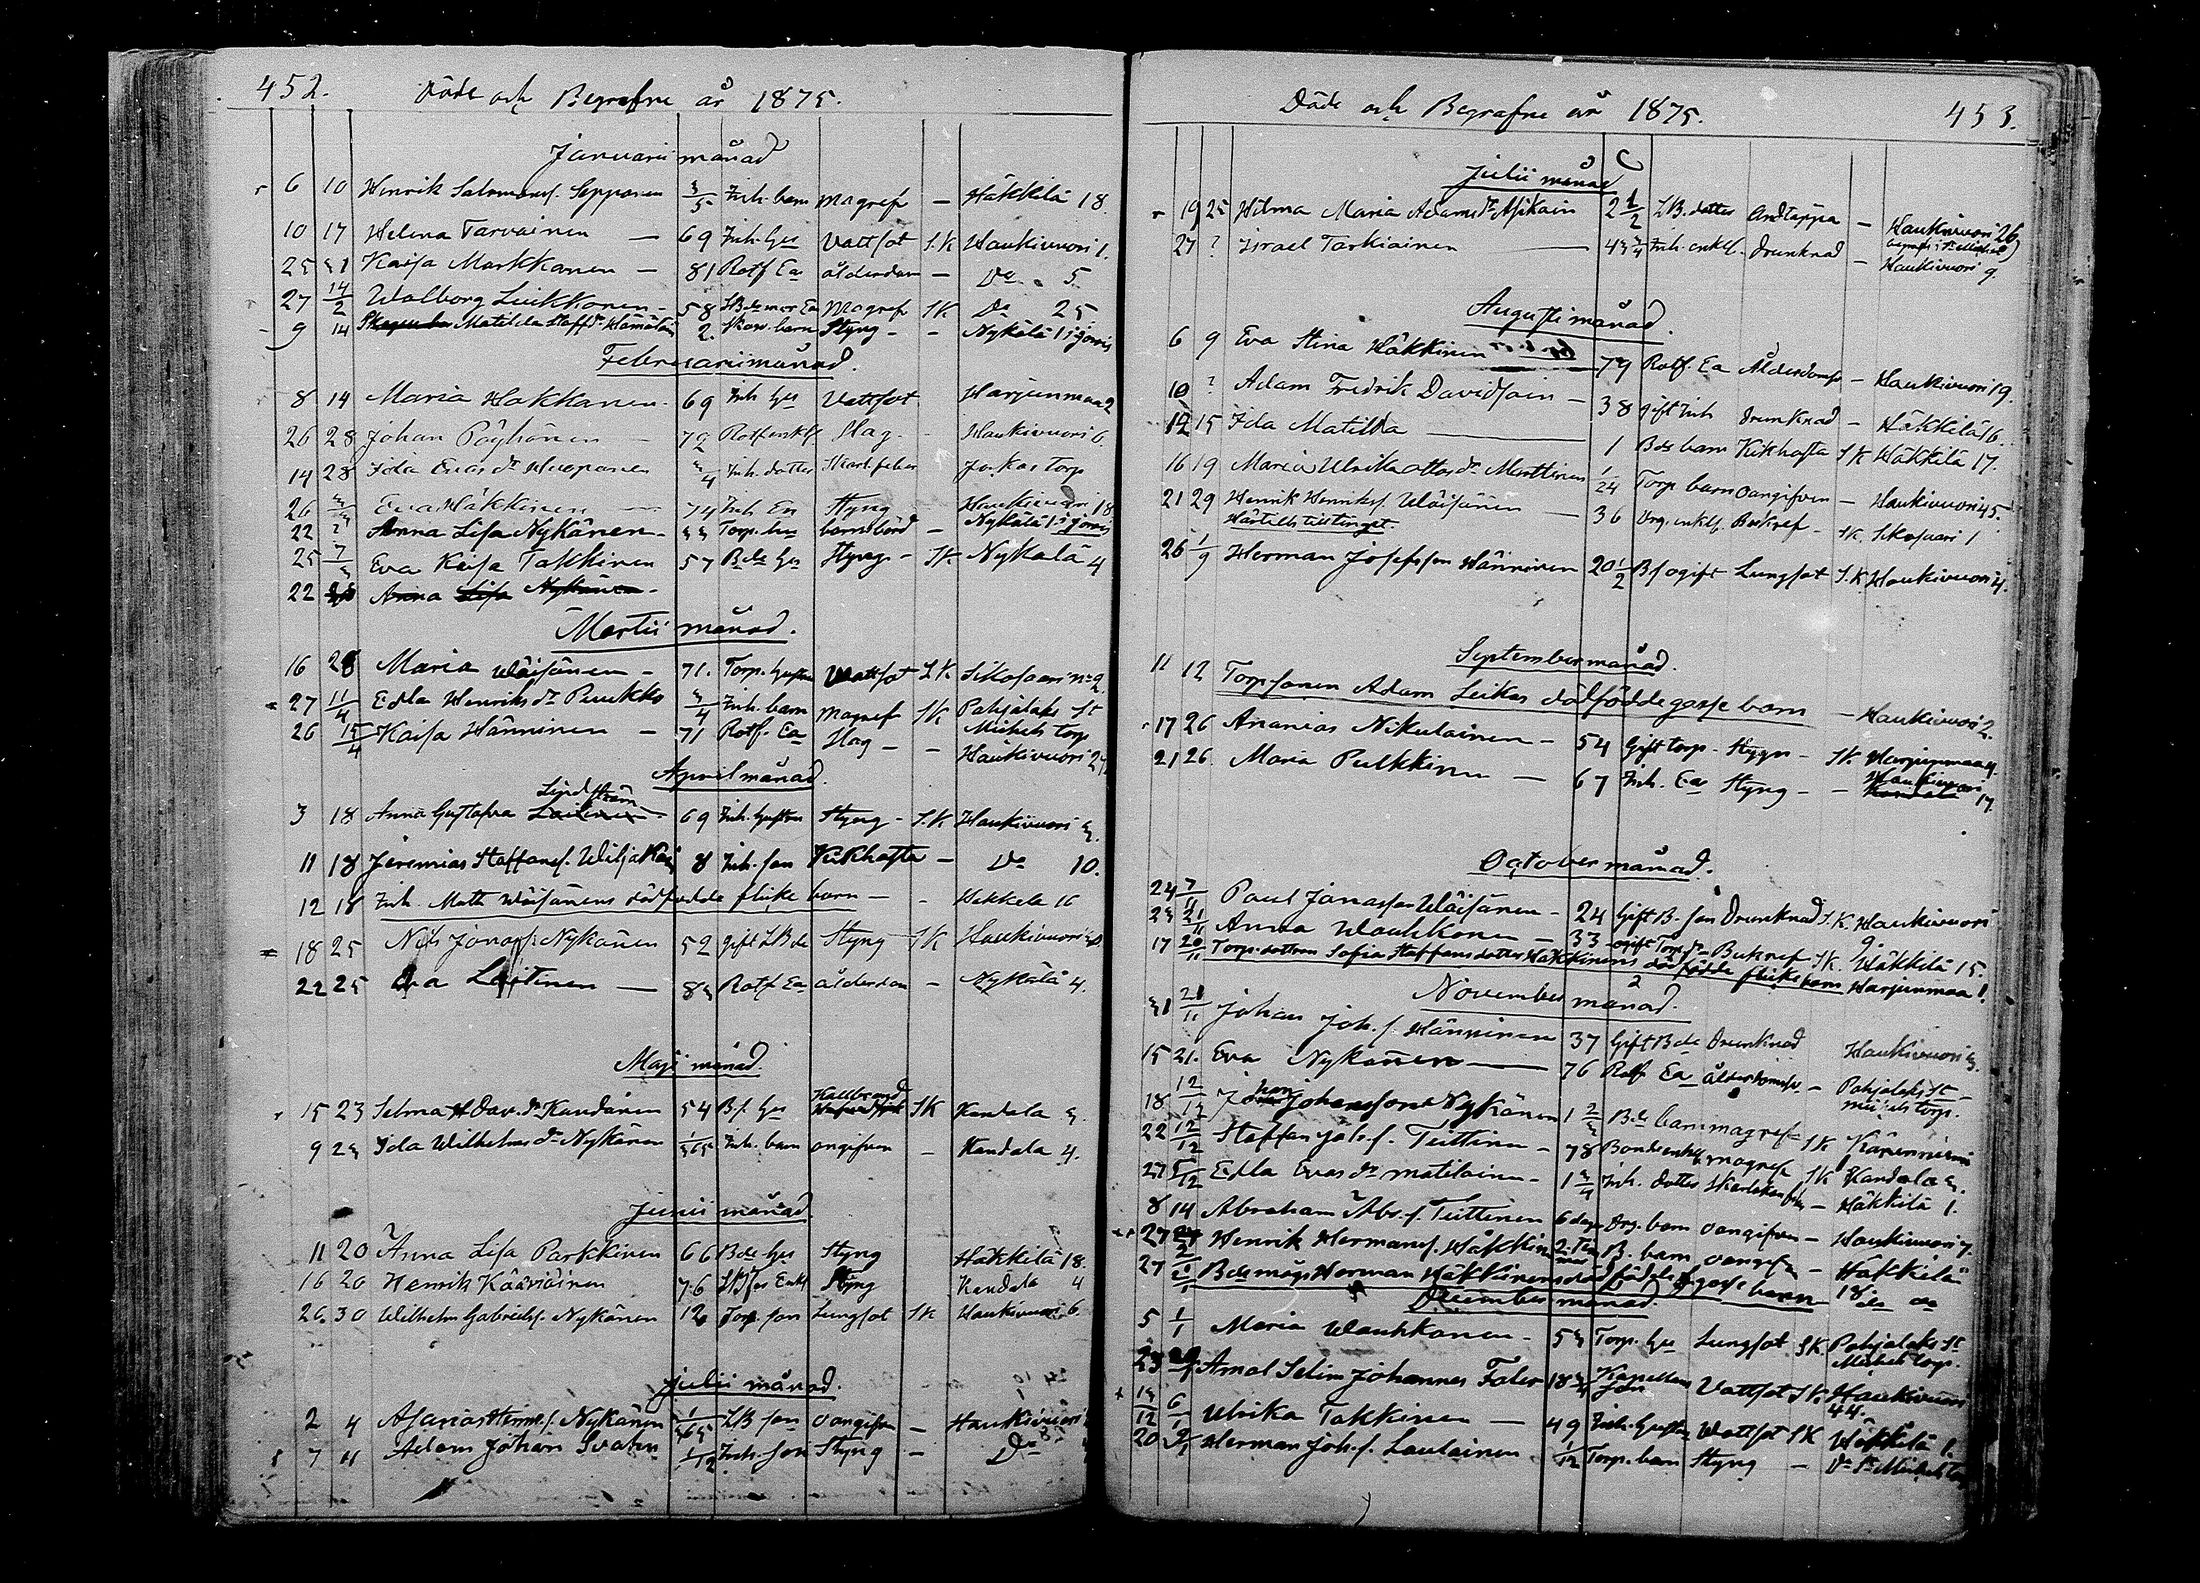 452. Döde och Begrafne år 1875.
Januarii månad
6 10 Henrik Salomonsf. Sepponen 3/5 Inh. barn Magref — Häkkilä 18.
10 17 Helena Tarvainen — 69 Inh. Hus Vattsot S.K Haukivuori 1.
25 31 Kaisa Markkanen — 81 Rotf Ea ålderdom — Do 5
27 14/2 Walborg Liukkonen — 58 Magref SK Do 25
9 14 Matilda Staffs dr Hämäläin 2. barn Styng — Nykälä 1
Februarii månad.
8 14 Maria Hakkanen 69 Inh Hus Vattsot Harjunmaa 2
26 28 Johan Pöyhönen — 72 Rotf enkl Slag — Haukivuori 6
14 28 Ida Evas dr Huoponen 3/4 Inh. dotter Skarl. feber Torp
26 Eva Häkkinen — 74 Inh En Styng Haukivuori 18
22 Anna Lisa Nykänen — 33 Torp. hu barnsbörd — Nykälä 1
25 7/3 Eva Kaisa Takkinen 57 Bde Hus Styng — SK Nykälä 4
22 Anna Lisa Nykänen
Martii månad.
16 28 Maria Wäisänen — 71. Torp. Wattsot S.K Siikasaari No 2.
27 11/4 Edla Henriks dr Puukko 3/4 Inh. barn magref SK Pohjalaks St Michels torp
26 15/4 Kaisa Hänninen — 71 Rotf. Ea Slag — — Haukivuori 24
April månad.
3 18 Anna Gustafva Lindström 69 Inh. Styng — S.K Haukivuori 3.
11 18 Jeremias Staffansf. Wiljakai 8 Inh. son Kikhosta — Do 10.
12 18 Inh. Math Wäisänens dödfödde flicke barn — — Häkkilä 16
18 25 Nils Jonasf. Nykänen 52 gift LBde Styng SK Haukivuori
22 25 Eva Laitinen — 83 Rotf Ea ålderdom — Nykälä 4.
Maji månad.
15 23 Selma H Dav. dr Kandänen 54 Bf. Hus Kallbrand SK Kandala 3.
9 23 Ida Wilhelms dr Nykänen 1/365 Inh. barn oangifven — Kandala 4.
Junii månad
11 20 Anna Lisa Parkkinen 66 Bde Hus Styng Häkkilä 18.
16 20 Henrik Kääriäinen 76 Styng Kandala 4
26. 30 Wilhelm Gabrielsf. Nykänen 12 Torp. son Lungsot SK Haukivuori 6
Julii månad.
2 4 Asarias Nykänen 1/365 LB son oangifven — Haukivuori
7 11 Adam Johan Svahn 1/12 Inh. son Styng — Do
Döde och Begrafne år 1875. 453.
Julii månad
19 25 Hilma Maria Adams dr Asikain 2 1/2 LB. dotter Andtäppa — Haukivuori 26
27 ? Israel Tarkiainen — 43 3/4 Inh. enkl. Drunknad — Haukivuori 9
Augusti månad.
6 9 Eva Stina Häkkinen 79 Rotf. Ea Ålderdoms — Haukivuori 19.
10 ? Adam Fredrik Davidsain — 38 gift Inh Drunknad — Häkkilä 16.
12 15 Ida Matilda — 1 Bds barn Kikhosta SK Häkkilä 17.
16 19 Maria Ulrika Ottos dr Marttinen 1/24 Torp barn oangifven — Haukivuori 45.
21 29 Henrik Henriksf. Wäisänen — 36 Drg. enkl. Bukref — SK. Siikasaari 1
26 1/9 Herman Josefsson Hänninen 20 1/2 Bf ogift Lungsot S.K Haukivuori 4.
September månad.
11 12 Torpsonen Adam Leikas dödfödde gosse barn — Haukivuori 2.
17 26 Ananias Nikulainen — 54 Gift torp. Styng — SK Harjunmaa 4.
21 26. Maria Pulkkinen — 67 Inh. Ea Styng — — Haukivuori 17
October månad.
24 7/11 Paul Jonasson Wäisänen — 24 Gift B. son Drunknad S.K. Haukivuori 9.
23 21/11 Anna Wauhkonen — 33 ogift Torp. dr Bukref SK. Häkkilä 15.
17 20/11 Torp. dottren Sofia Staffans dotter Häkkinens dödfödde flicke barn Harjunmaa 1.
November månad.
31 21/11 Johan Joh. f. Hänninen 37 Gift Bde Drunknad Haukivuori 3.
15 21. Eva Nykänen — 76 Rotf Ea ålderdoms — Pohjalaks St Michels torp.
18 12/12 Johansson Nykänen 1 2/3 Bde barn magref SK Käpenniemi
22 12/12 Staffan Joh. f. Teittinen — 78 Bonde enkl magref SK Kandala 3.
27 5/12 Edla Evas dr Matilainen — 1 3/4 Inh. dotter Skarlakansf — Häkkilä 1.
8 14 Abraham Abr. f. Teittinen 6 dag Drg. barn oangifven — Haukivuori 7.
27 Henrik Hermansf. Häkkinen B. barn oangifv — Häkkilä 18
27 Herman Häkkinens dödfödde gosse barn do do
December månad.
5 1/1 Maria Wauhkonen — 53 Torp. Hus Lungsot SK Pohjalaks St Michels torp.
23 Amal Selim Johannes Faler 18 3/4 Kapellans son Vattsot SK Haukivuori 44.
13/12 6/1 Ulrika Takkinen — 49 Inh. Wattsot SK Häkkilä 1.
20 Herman Joh. f. Lautainen 1/12 Torp. barn Styng — Do St Michels torp